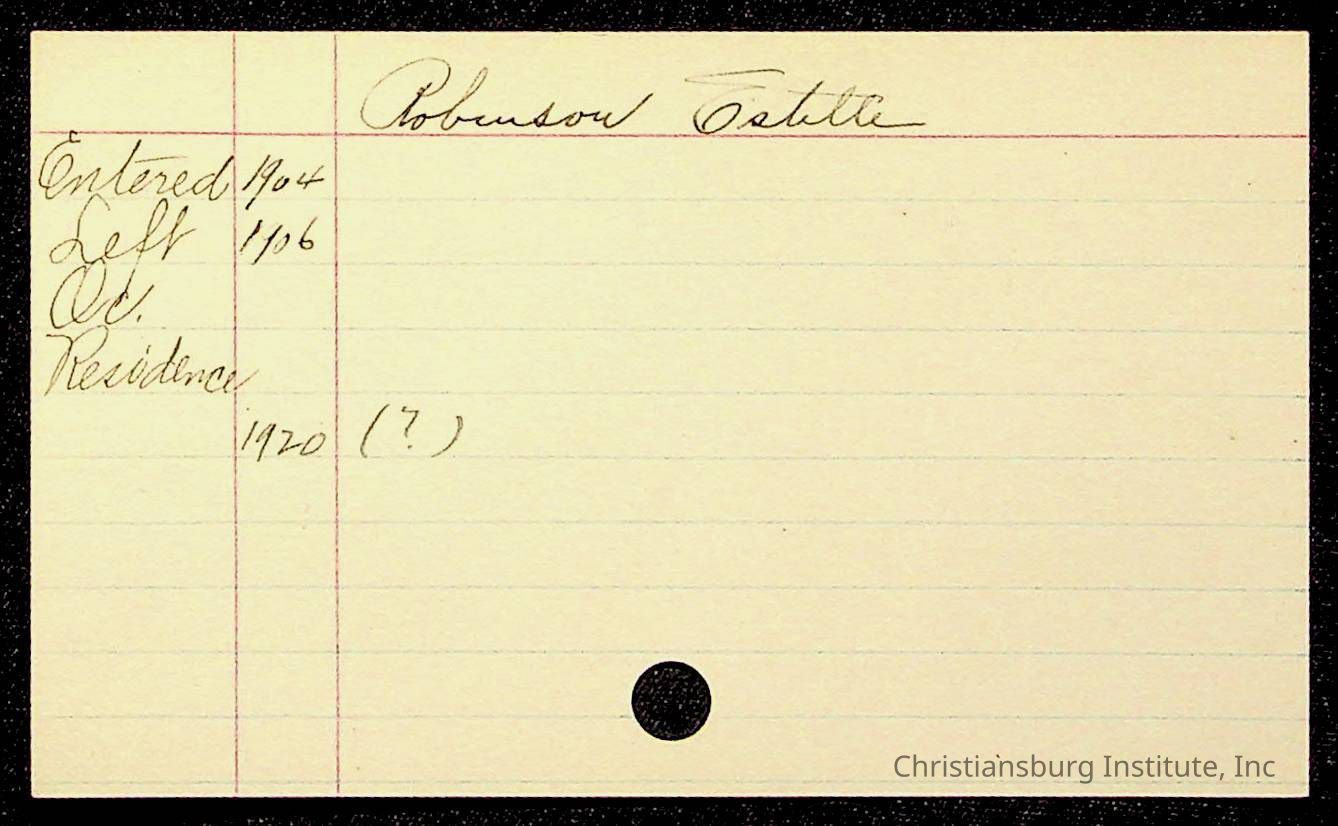 Robinson Estelle
Entered 1904
Left 1906
Oc.
Residence
1920 (?)
Christiansburg Institute, Inc